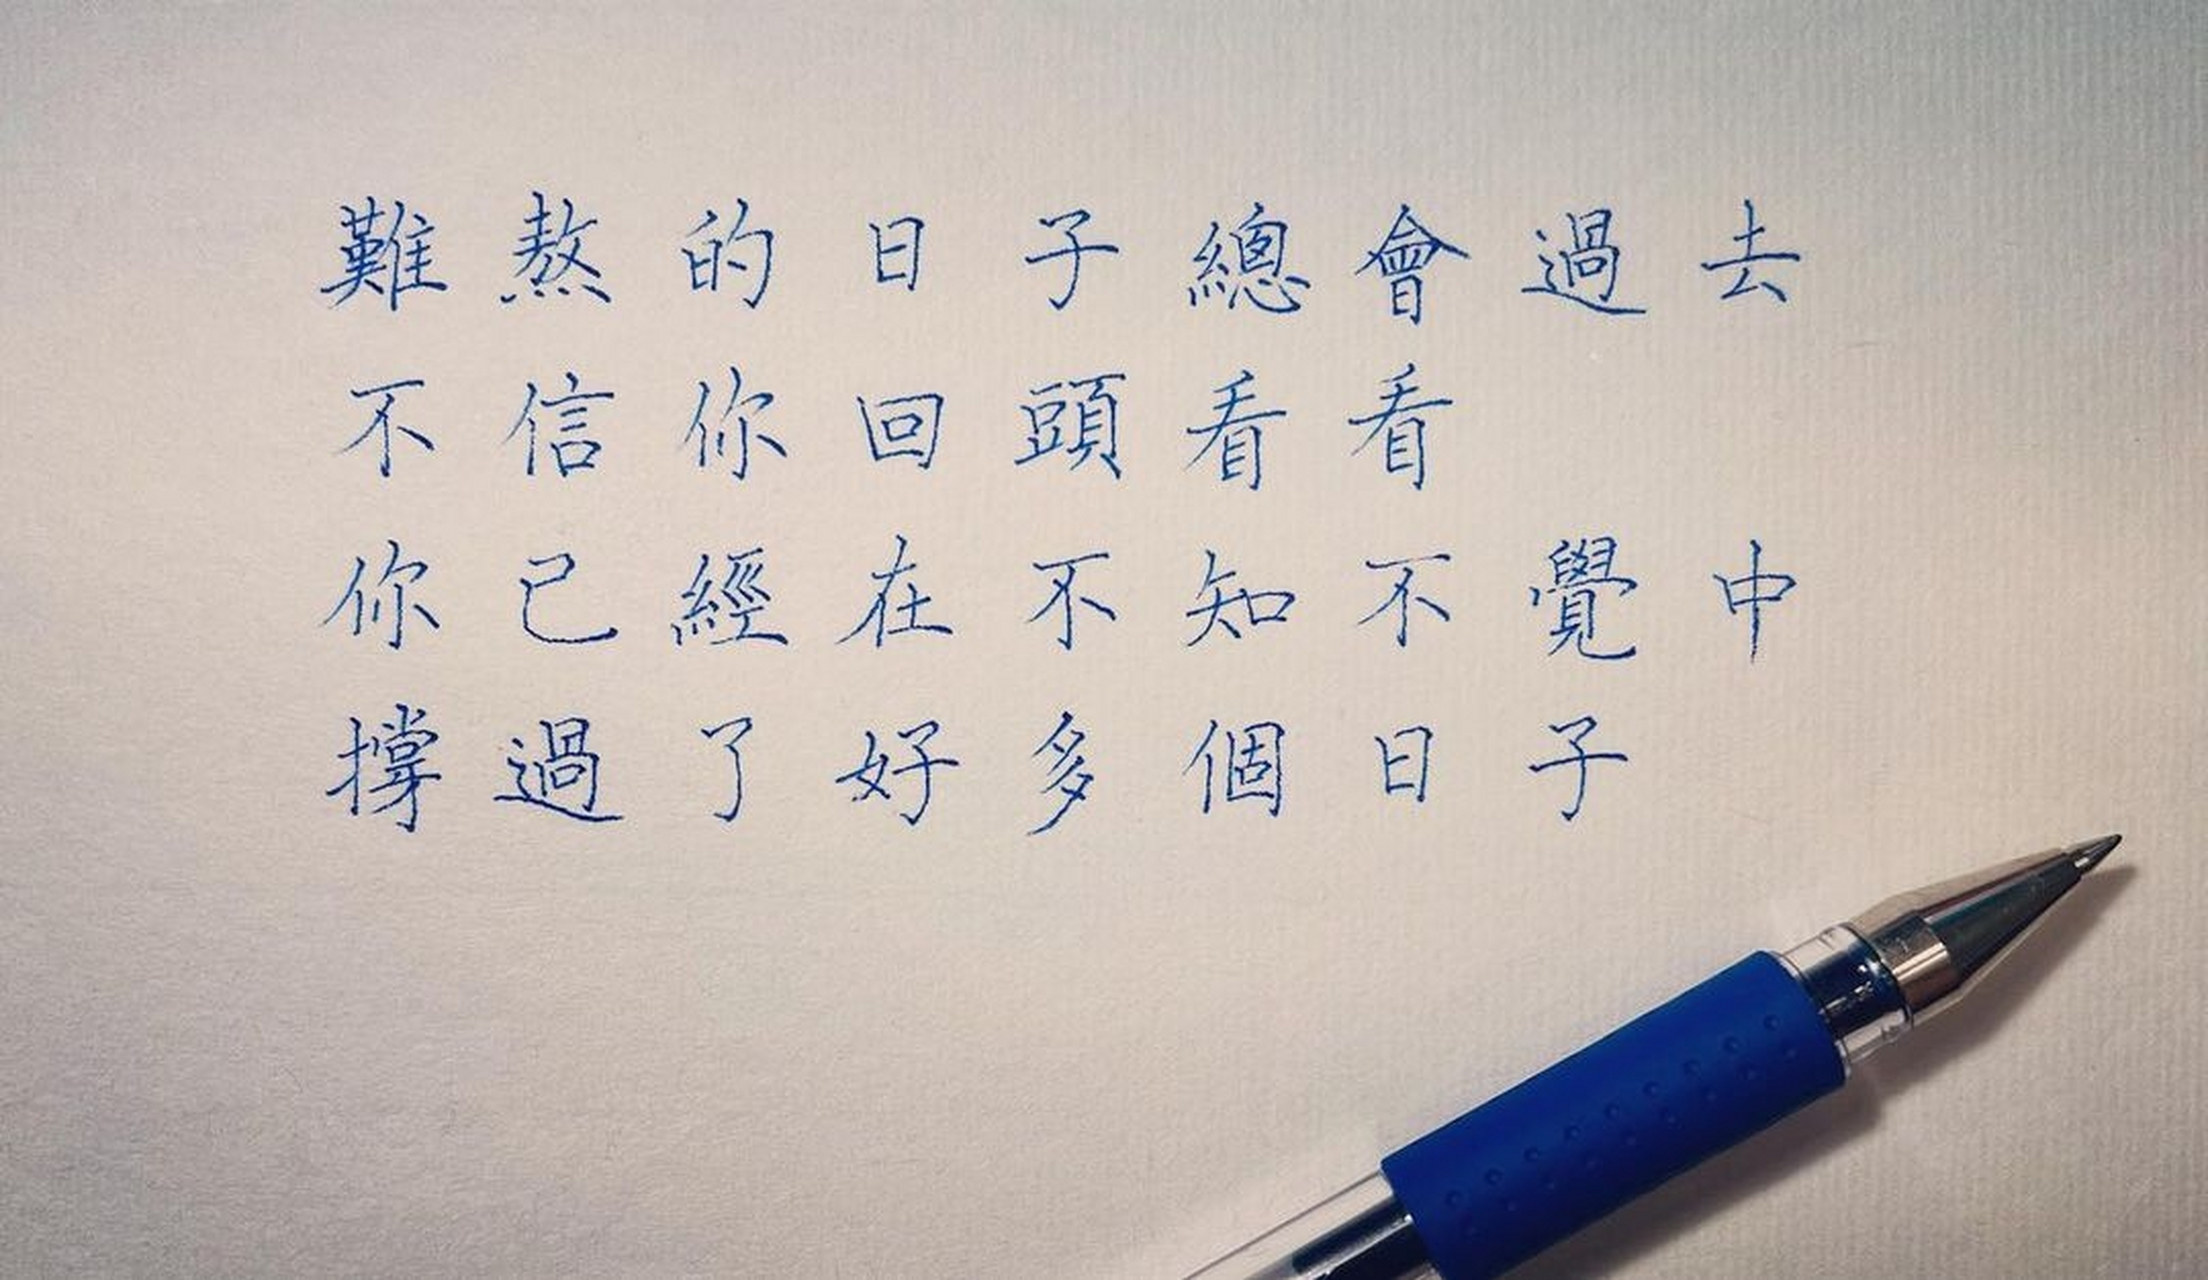 難熬的日子總會過去
不信你回頭看看
你已經在不知不覺中
撐過了好多個日子